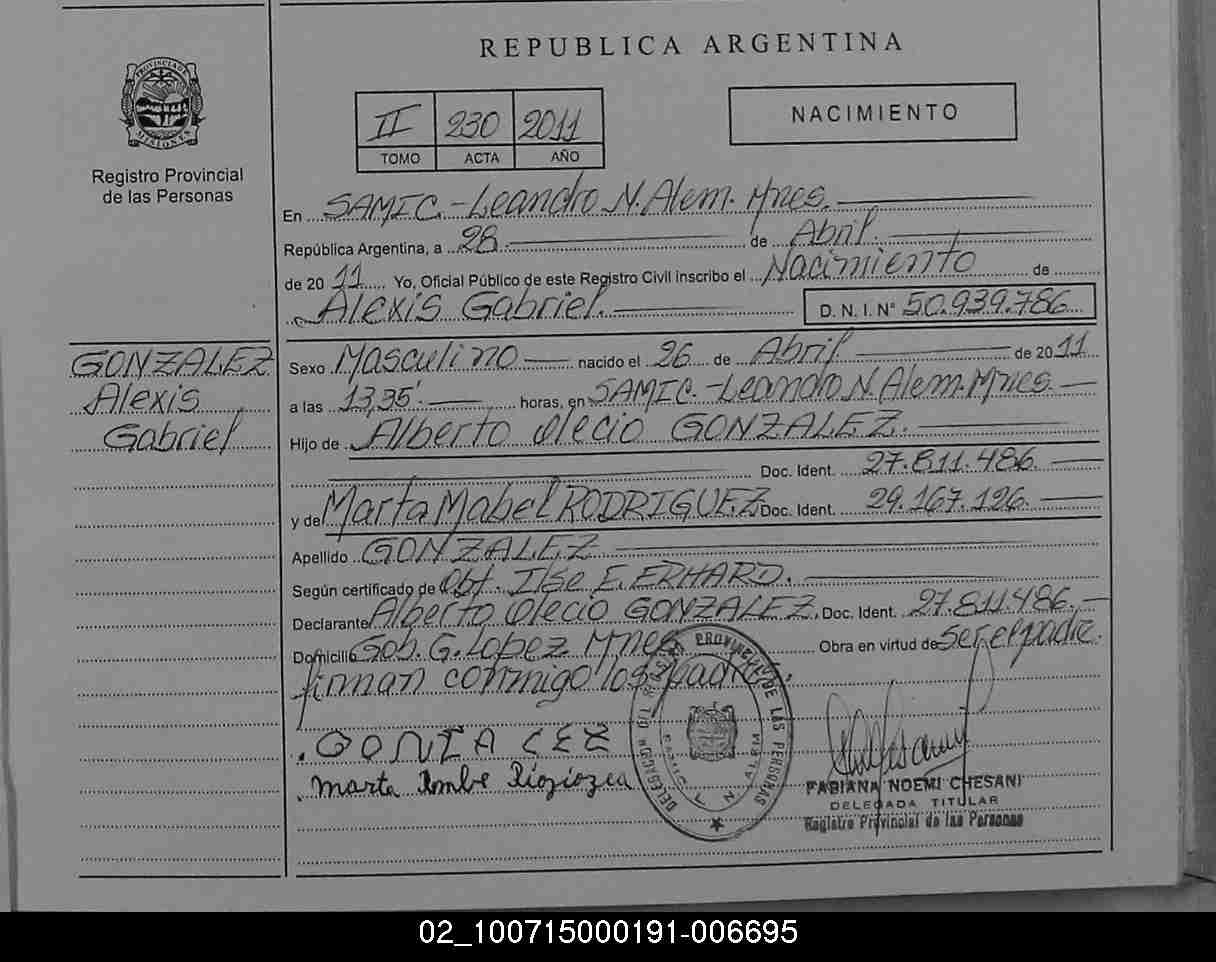 REPUBLICA ARGENTINA
PROVINCIA DE MISIONES
Registro Provincial
de las Personas
II 230 2011
TOMO ACTA AÑO
NACIMIENTO
En SAMIC.-Leandro N. Alem. Mnes.
República Argentina, a 28 de Abril
de 20 11 Yo, Oficial Público de este Registro Civil inscribo el Nacimiento de
Alexis Gabriel. D. N. I. Nº 50.939.786
GONZALEZ
Alexis
Gabriel
Sexo Masculino nacido el 26 de Abril de 20 11
a las 13,35' horas, en SAMIC.-Leandro N. Alem. Mnes.
Hijo de Alberto Olecio GONZALEZ.
Doc. Ident. 27.811.486.
y de Marta Mabel RODRIGUEZ Doc. Ident. 29.167.126.
Apellido GONZALEZ
Según certificado de Obt. Ilse E. ERHARD.
Declarante Alberto Olecio GONZALEZ. Doc. Ident. 27.811.486.
Domicilio Gob. G. Lopez Mnes Obra en virtud de ser el padre.
firman conmigo los padres.
GONZA LEZ
Marta
PROVINCIAL DE LAS PERSONAS
FABIANA NOEMI CHESANI
DELEGADA TITULAR
Registro Provincial de las Personas
02_100715000191-006695